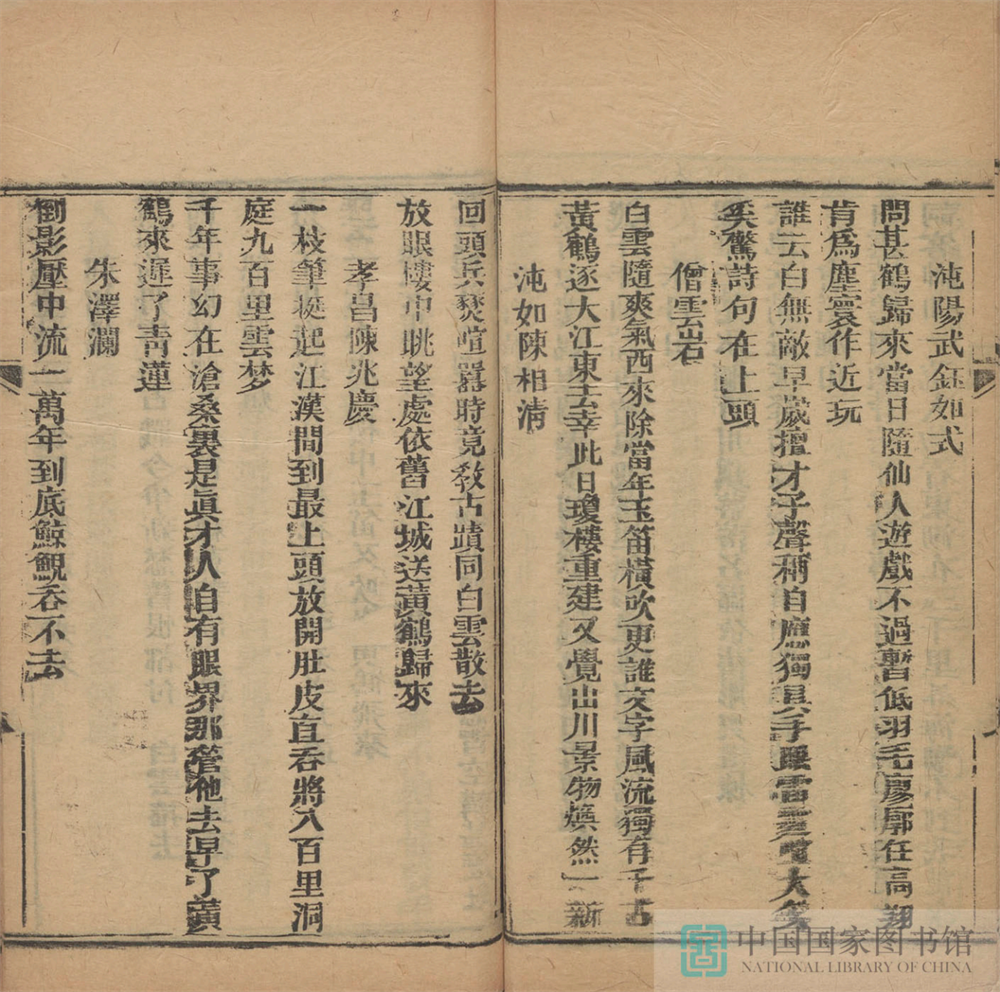 沌陽武鈺如式
問甚鶴歸來當日隨仙人遊戲不過暫低羽毛廖廓在高翔
肯爲塵寰作近玩
誰云白無敵早歲擅才子聲稱自應獨具手眼雷大笑
驚詩句在上頭
僧雲岩
白雲隨爽氣西來除當年玉笛橫吹更誰文字風流獨有千古
黃鶴逐大江東去幸此日瓊樓重建又覺出川景物煥然一新
沌如陳相淸
回頭兵燹喧囂時竟敎古蹟同白雲散去
放眼樓中眺望處依舊江城送黃鶴歸來
孝昌陳兆慶
一枝筆挺起江漢間到最上頭放開肚皮直吞將八百里洞
庭九百里雲梦
千年事幻在滄桑裏是眞才人自有眼界那管他去早了黃
鶴來遲了靑蓮
朱澤瀾
倒影壓中流一萬年到底鯨鯢呑不去
中国国家图书馆
NATIONAL LIBRARY OF CHINA